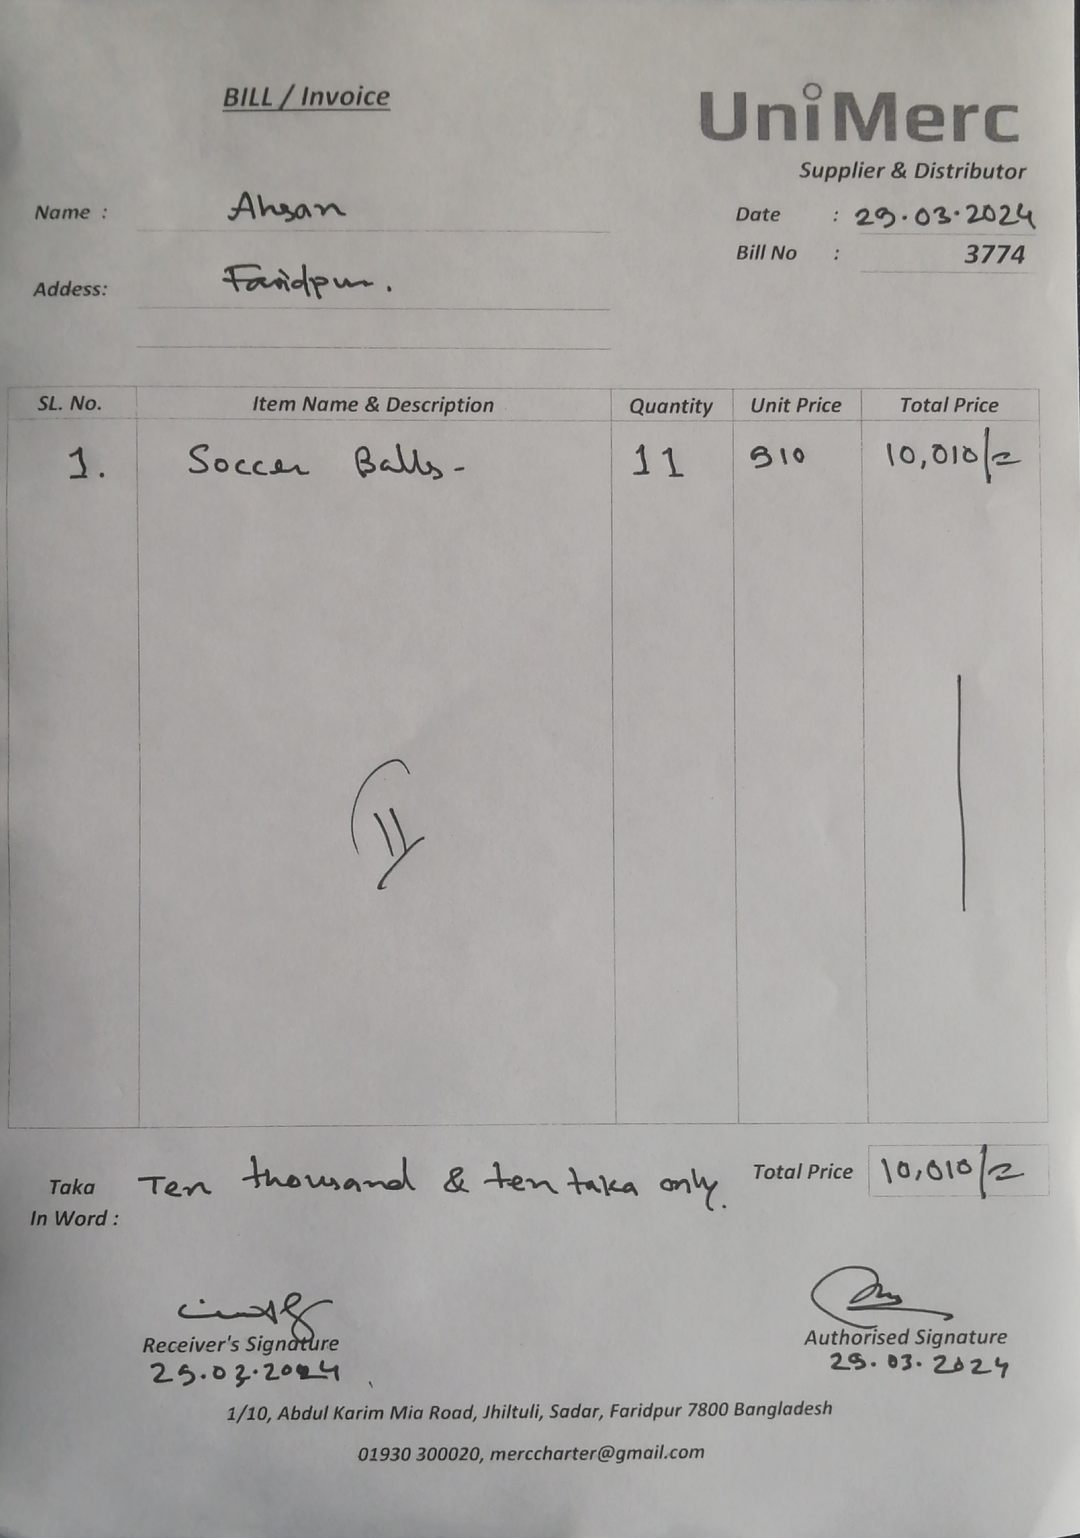 BILL / Invoice
UniMerc
Supplier & Distributor
Name : Ahsan
Date : 29.03.2024
Bill No : 3774
Addess: Faridpur.
SL. No. Item Name & Description Quantity Unit Price Total Price
1. Soccer Balls - 11 910 10,010/=
Taka In Word : Ten thousand & ten taka only.
Total Price 10,010/=
Receiver's Signature
29.03.2024
Authorised Signature
29.03.2024
1/10, Abdul Karim Mia Road, Jhiltuli, Sadar, Faridpur 7800 Bangladesh
01930 300020, merccharter@gmail.com